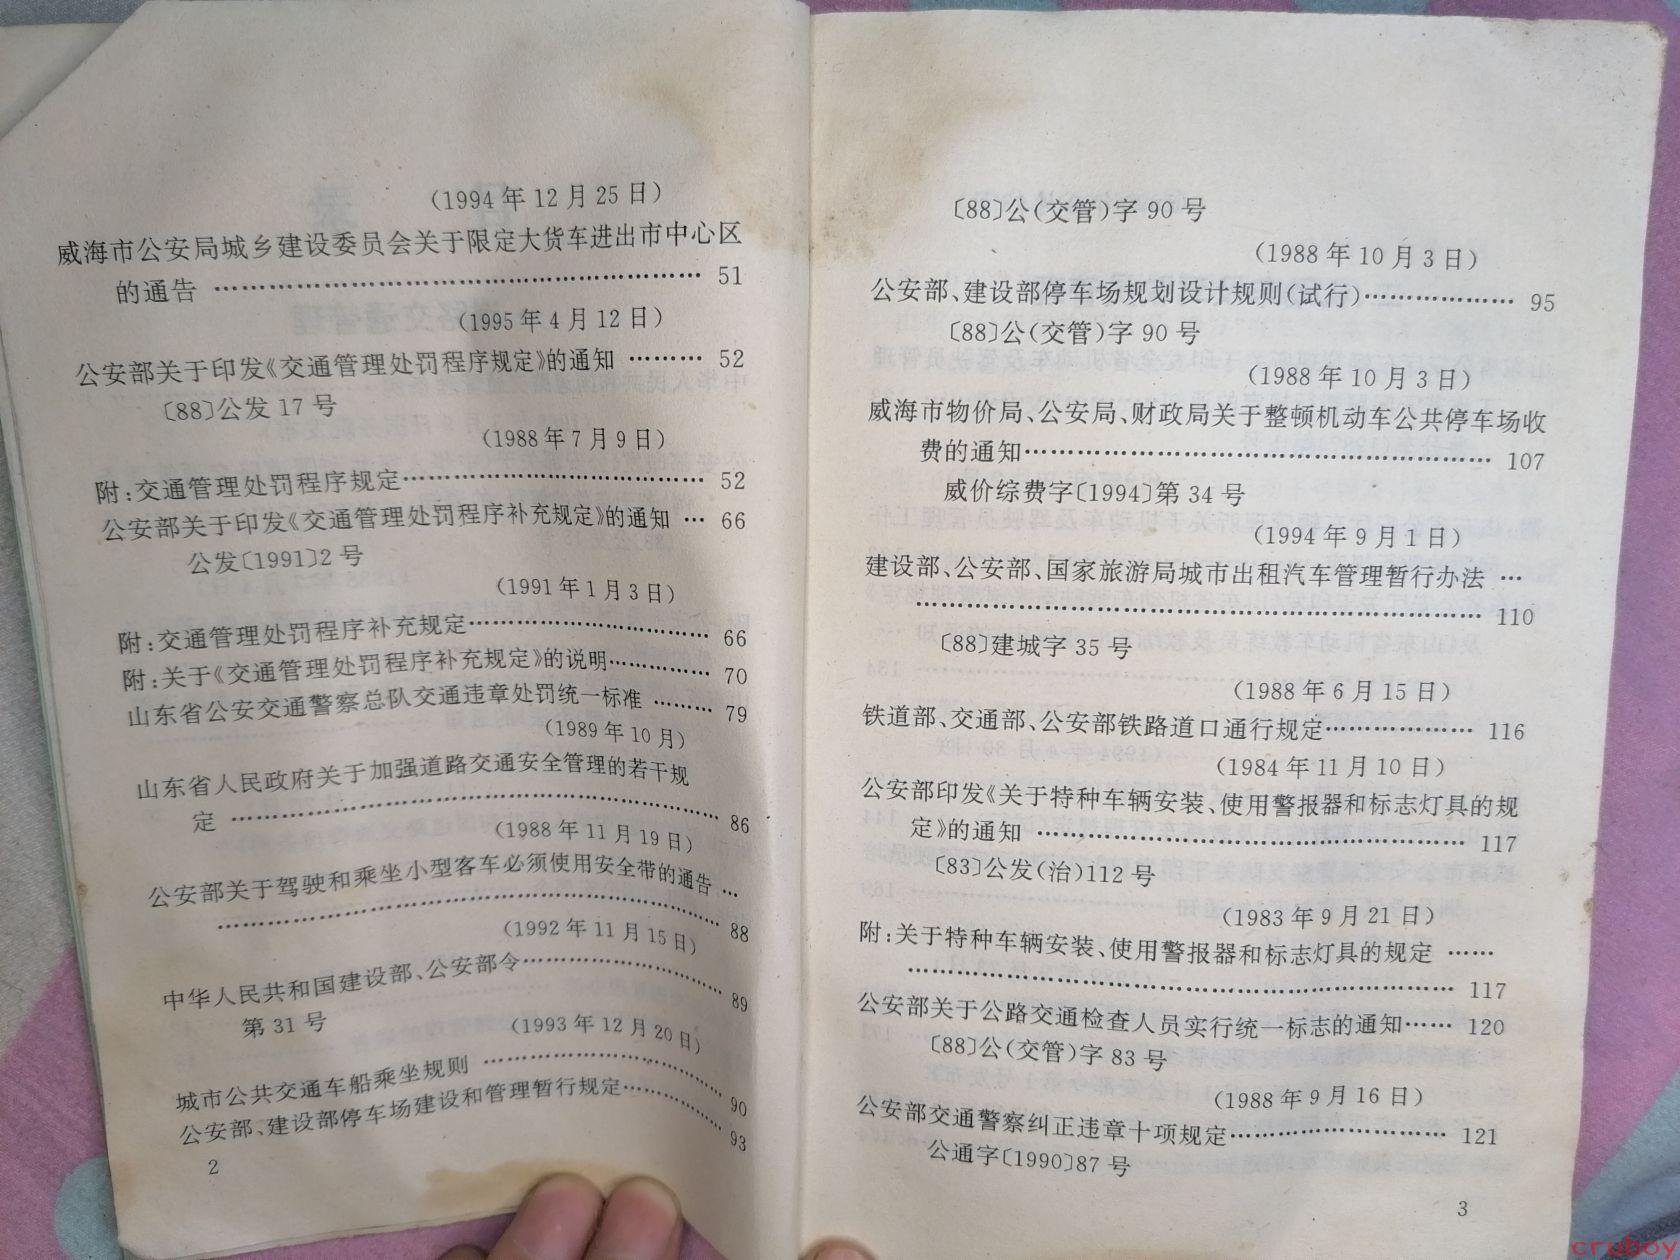 (1994年12月25日)
威海市公安局城乡建设委员会关于限定大货车进出市中心区
的通告 …………………………………………… 51
(1995年4月12日)
公安部关于印发《交通管理处罚程序规定》的通知 ……… 52
〔88〕公发17号
(1988年7月9日)
附:交通管理处罚程序规定…………………………… 52
公安部关于印发《交通管理处罚程序补充规定》的通知 … 66
公发〔1991〕2号
(1991年1月3日)
附:交通管理处罚程序补充规定……………………… 66
附:关于《交通管理处罚程序补充规定》的说明………… 70
山东省公安交通警察总队交通违章处罚统一标准 ……… 79
(1989年10月)
山东省人民政府关于加强道路交通安全管理的若干规
定 …………………………………………… 86
(1988年11月19日)
公安部关于驾驶和乘坐小型客车必须使用安全带的通告 …
…………………………………………… 88
(1992年11月15日)
中华人民共和国建设部、公安部令…………………… 89
第31号
(1993年12月20日)
城市公共交通车船乘坐规则 ………………………… 90
公安部、建设部停车场建设和管理暂行规定………… 93
2
〔88〕公(交管)字90号
(1988年10月3日)
公安部、建设部停车场规划设计规则(试行)……………… 95
〔88〕公(交管)字90号
(1988年10月3日)
威海市物价局、公安局、财政局关于整顿机动车公共停车场收
费的通知…………………………………………… 107
威价综费字〔1994〕第34号
(1994年9月1日)
建设部、公安部、国家旅游局城市出租汽车管理暂行办法 …
…………………………………………………… 110
〔88〕建城字35号
(1988年6月15日)
铁道部、交通部、公安部铁路道口通行规定……………… 116
(1984年11月10日)
公安部印发《关于特种车辆安装、使用警报器和标志灯具的规
定》的通知 ………………………………………… 117
〔83〕公发(治)112号
(1983年9月21日)
附:关于特种车辆安装、使用警报器和标志灯具的规定 ……
…………………………………………………… 117
公安部关于公路交通检查人员实行统一标志的通知…… 120
〔88〕公(交管)字83号
(1988年9月16日)
公安部交通警察纠正违章十项规定…………………… 121
公通字〔1990〕87号
3
cruboy